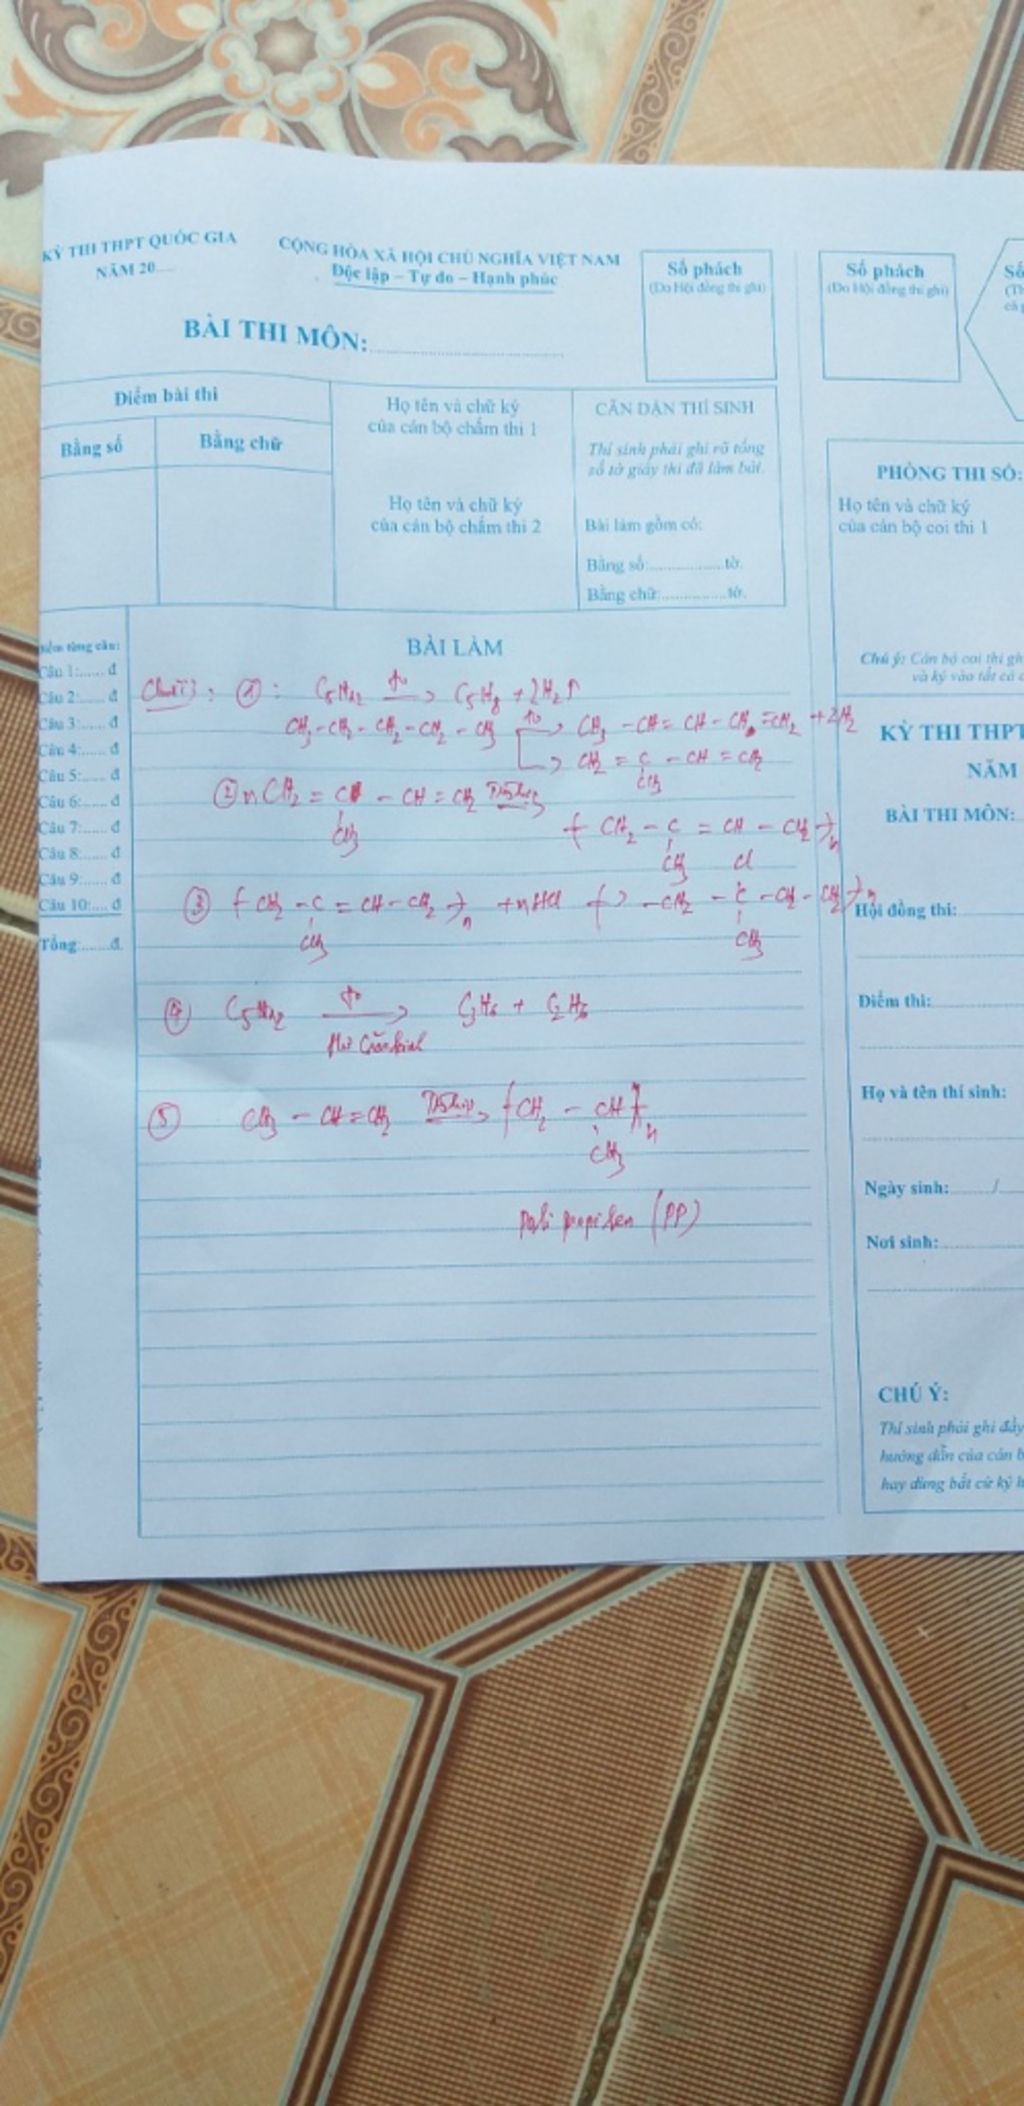 KỲ THI THPT QUỐC GIA
NĂM 20.....
CỘNG HÒA XÃ HỘI CHỦ NGHĨA VIỆT NAM
Độc lập – Tự do – Hạnh phúc
BÀI THI MÔN:
Số phách
(Do Hội đồng thi ghi)
Số phách
(Do Hội đồng thi ghi)
Số
Điểm bài thi
Bằng số
Bằng chữ
Họ tên và chữ ký
của cán bộ chấm thi 1
Họ tên và chữ ký
của cán bộ chấm thi 2
CĂN DẶN THÍ SINH
Thí sinh phải ghi rõ tổng
số tờ giấy thi đã làm bài.
Bài làm gồm có:
Bằng số:..............tờ.
Bằng chữ:..............tờ.
PHÒNG THI SỐ:
Họ tên và chữ ký
của cán bộ coi thi 1
Chú ý: Cán bộ coi thi gh
và ký vào tất cả c
Điểm từng câu:
Câu 1:...... đ
Câu 2:...... đ
Câu 3:...... đ
Câu 4:...... đ
Câu 5:...... đ
Câu 6:...... đ
Câu 7:...... đ
Câu 8:...... đ
Câu 9:...... đ
Câu 10:.... đ
Tổng:.......đ.
BÀI LÀM
① : C5H12 t° → C5H8 + 2H2↑
CH3 – CH2 – CH2 – CH2 – CH3 t° → CH3 – CH = CH – CH = CH2 + 2H2
→ CH2 = C – CH = CH2
CH3
② n CH2 = C – CH = CH2
CH3
( CH2 – C = CH – CH2 )n
CH3
Cl
③ ( CH2 – C = CH – CH2 )n + nHCl → – CH2 – C – CH – CH2 )n
CH3
CH3
④ C5H12 t° → C3H6 + C2H6
⑤ CH3 – CH = CH2 → ( CH2 – CH )n
CH3
Poli propilen (PP)
KỲ THI THPT
NĂM
BÀI THI MÔN:
Hội đồng thi:
Điểm thi:
Họ và tên thí sinh:
Ngày sinh: /
Nơi sinh:
CHÚ Ý:
Thí sinh phải ghi đầy
hướng dẫn của cán b
hay dùng bất cứ ký h